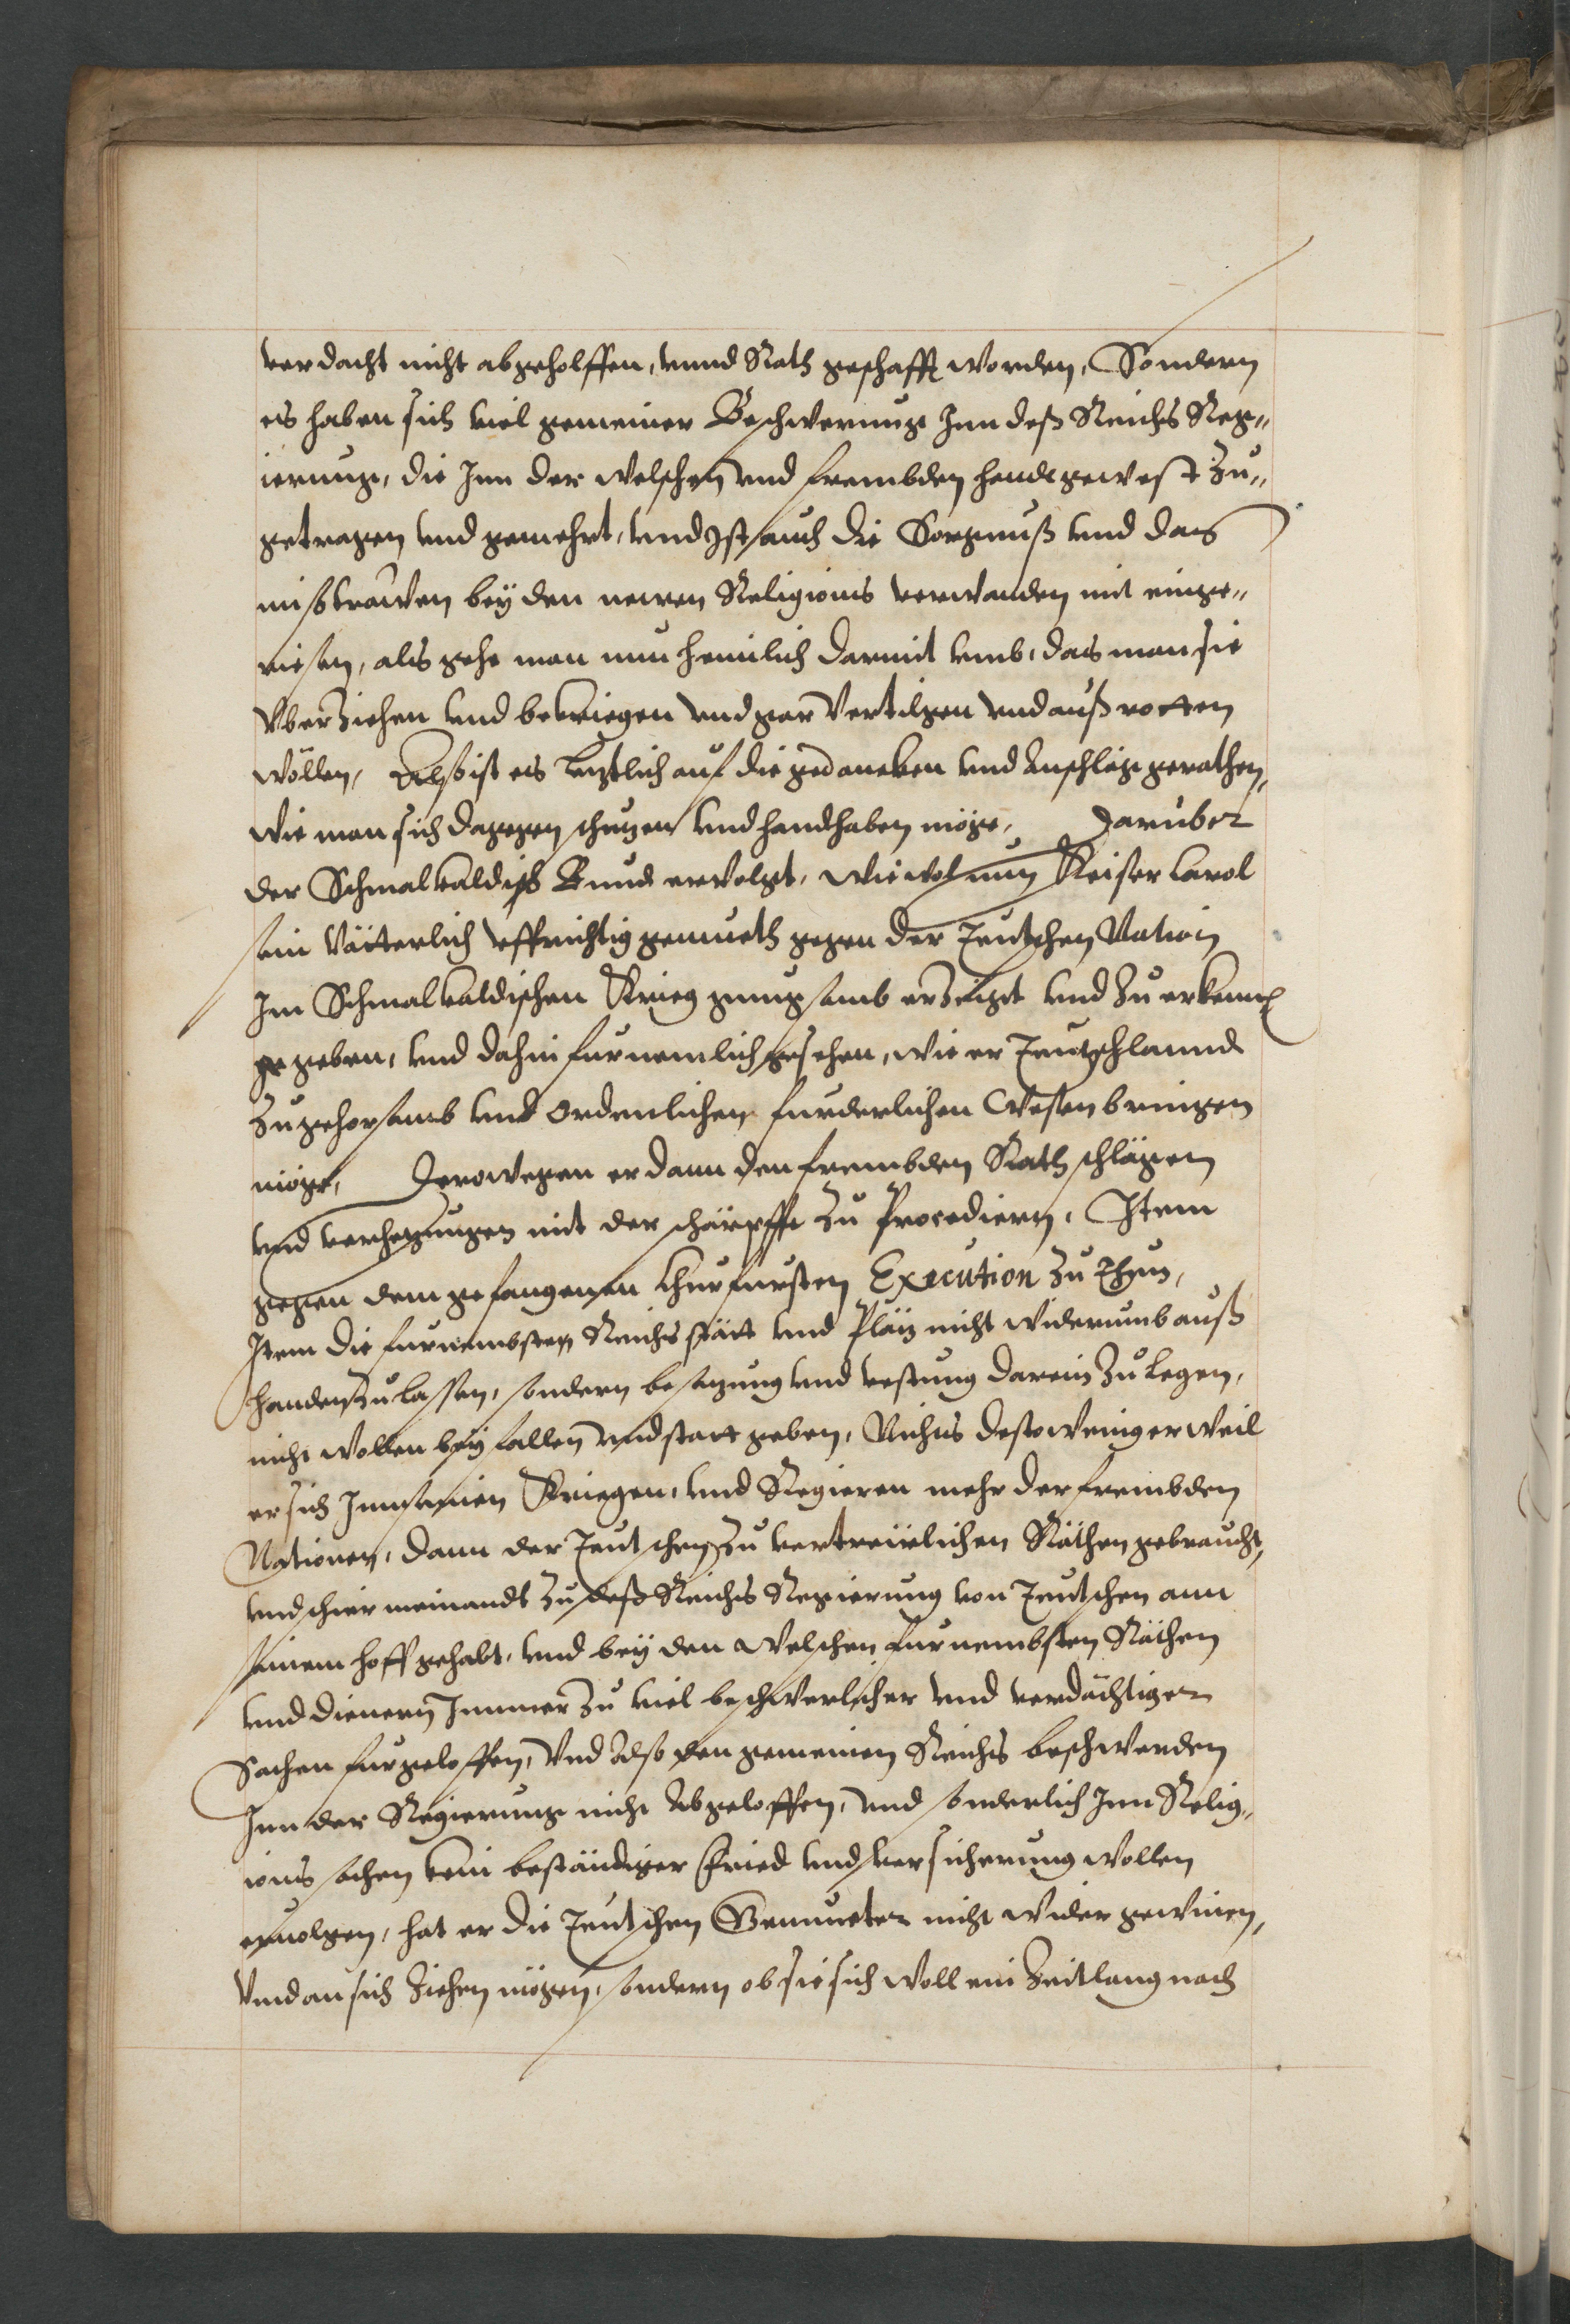 verdacht nicht abgeholffen, vnnd Rath geschafft worden, Sondern
es haben sich viel gemeiner Beschwerung Inn deß Reichs Reg„
ierung, die Inn der Welschen vnd frembden hendt gewest zu„
getragen vnd gemehrt, vnd Ist auch die Sorgnuß vnd das
mißtrawen bey den newen Religions verwanden mit einge„
rissen, als gehe man nun heimlich darmit vmb, das man sie
Vberziehen vnd bekriegen vnd gar Vertilgen vnd außrotten
wöllen, Alß ist es letztlich auf die gedancken vnd Anschläge gerathen,
wie man sich dagegen schutzen vnd handhaben möge, Daruber
der Schmalkaldisch Bund ervolgt, wiewol nun Keiser Carol
sein Vätterlich vffrichtig gemueth gegen der Teutschen Nation
Im Schmalkaldischen Krieg gnugsamb erzeigt vnd zu erkennen
gegeben, vnd dahin furnemlich gesehen, wie er Teutschlannd
zu gehorsamb vnd ordenlichen furderlichen Wesen bringen
möge, Derowegen er dann den frembden Rathschlägen
vnd verhetzungen mit der schärpffe zu Procediern, Item
gegen dem gefangenen Churfursten Execution zu Thun,
Item die furnembsten Reichs stätt vnd Plätz nicht widerumb auß
handen zu lassen, sondern besatzung vnd vestung darein zu legen,
nicht wollen beyfallen vnd statt geben, Nichts destoweniger weil
er sich Inn seinen Kriegen, vnd Regieren mehr der frembden
Nationen, dann der Teutschen zu vertreulichen Räthen gebraucht,
vnd schier niemandt zu deß Reichs Regierung von Teutschen ann
seinem hoff gehabt, vnd bey den Welschen furnembsten Räthen
vnd dienern Immerzu viel beschwerlicher vnd verdächtiger
Sachen furgeloffen, Vnd Also den gemeinen Reichs beschwerden
Inn der Regierung nicht Abgeloffen, vnd sonderlich Inn Relig„
ions sachen kein beständiger Fried vnd versicherung wollen
ervolgen, hat er die Teutschen Gemueter nicht wider gewinen,
Vnd an sich Ziehen mögen, sondern ob sie sich woll ein Zeitlang nach